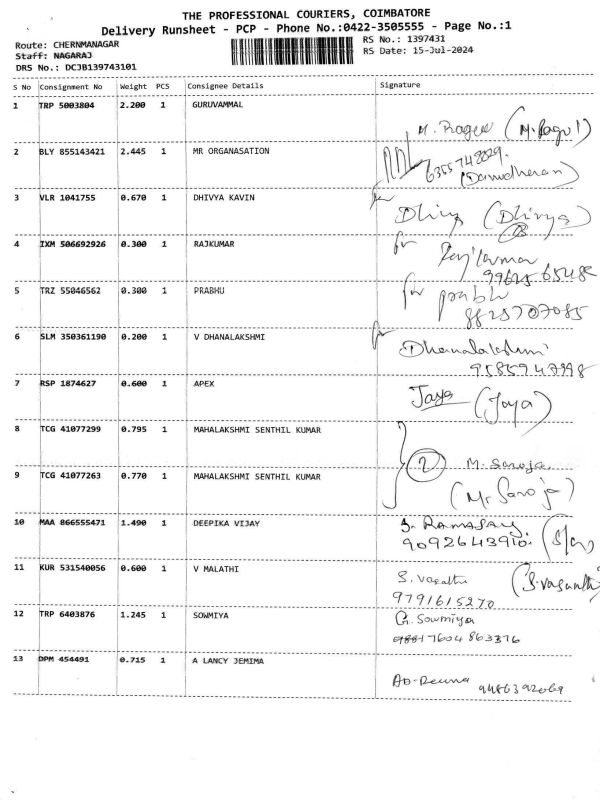 THE PROFESSIONAL COURIERS, COIMBATORE
Delivery Runsheet - PCP - Phone No.:0422-3505555 - Page No.:1
Route: CHERNMANAGAR
RS No.: 1397431
Staff: NAGARAJ
RS Date: 15-Jul-2024
DRS No.: DCJB139743101
S No Consignment No Weight PCS Consignee Details Signature
1 TRP 5003804 2.200 1 GURUVAMMAL
M. Ragul (M.Ragul)
2 BLY 855143421 2.445 1 MR ORGANASATION
6355748829.
(Damodharan)
3 VLR 1041755 0.670 1 DHIVYA KAVIN
for
Dhivya (Dhivya)
4 IXM 506692926 0.300 1 RAJKUMAR
for
Rajkumar
5 TRZ 55046562 0.300 1 PRABHU
for prabhu
8825707085
6 SLM 350361190 0.200 1 V DHANALAKSHMI
for
Dhanalakshmi
9585947998
7 RSP 1874627 0.600 1 APEX
Jaya (Jaya)
8 TCG 41077299 0.795 1 MAHALAKSHMI SENTHIL KUMAR
2 M. Saroja
9 TCG 41077263 0.770 1 MAHALAKSHMI SENTHIL KUMAR
(M. Saroja)
10 MAA 866555471 1.490 1 DEEPIKA VIJAY
S. RAMASAMY
9092643910.
11 KUR 531540056 0.600 1 V MALATHI
S. Vasathi (S.vasanthi)
9791615270
12 TRP 6403876 1.245 1 SOWMIYA
G. Sowmiya
7604863376
13 DPM 454491 0.715 1 A LANCY JEMIMA
9486392069